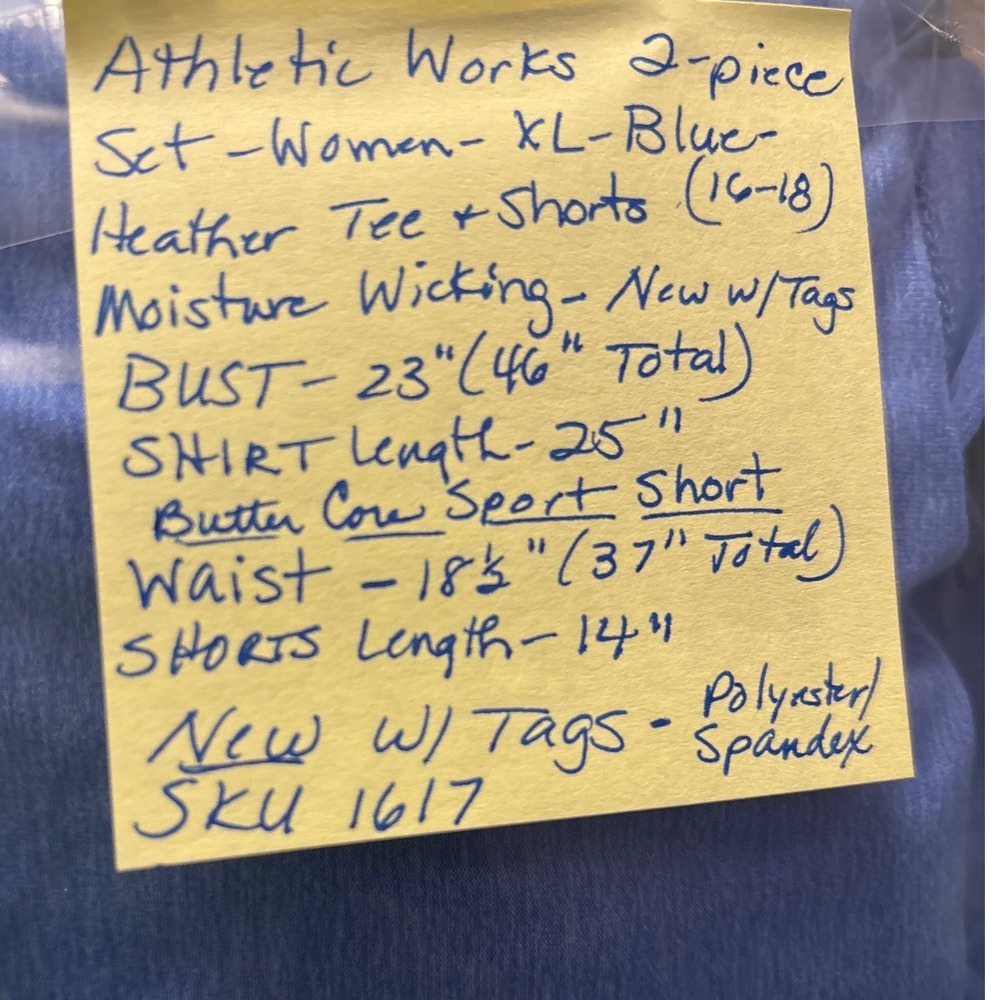 Athletic Works 2-piece
Set - Women - XL - Blue -
Heather Tee + Shorts (16-18)
Moisture Wicking - New w/Tags
BUST - 23" (46" Total)
SHIRT Length - 25"
Butter Core Sport Short
Waist - 18½" (37" Total)
SHORTS Length - 14"
New w/ Tags - Polyester/
Spandex
SKU 1617